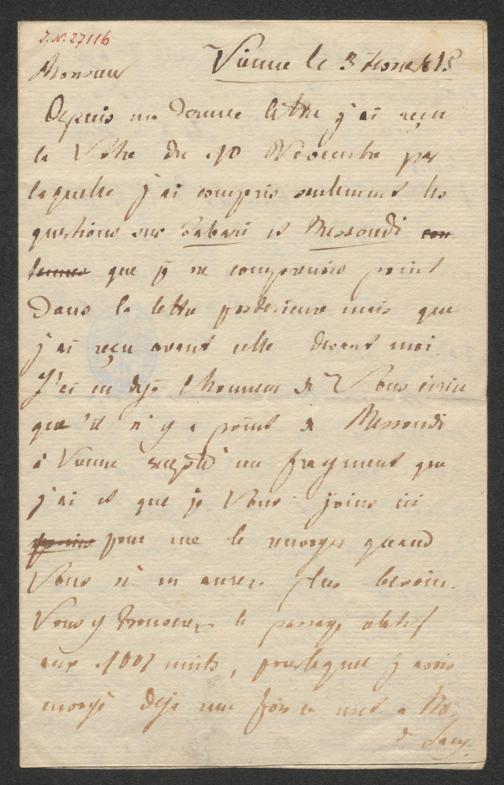 J.N. 27116
Vienne le 3
Monsieur
Depuis ma dernre lettre j'ai reçu
la Votre du 10 Novembre par
laquelle j'ai compris seulement les
questions sur Tabari et Messoudi con
tenues que je ne comprenois point
Dans la lettre posterieure mais que
j'ai reçu avant celle devant moi.
J'ai eu deja l'honneur de Vous écrire
que'il n'y a point de Messoudi
à Vienne excepté un fragment que
j'ai et que je Vous joins ici
pour me le renvoyer quand
Vous n'en aurez plus besoin.
Vous y trouverez le passage relatif
aux 1001 nuits, pour lequel j'avois
envoyé deja une fois ce mst a Mr
de Sacy.